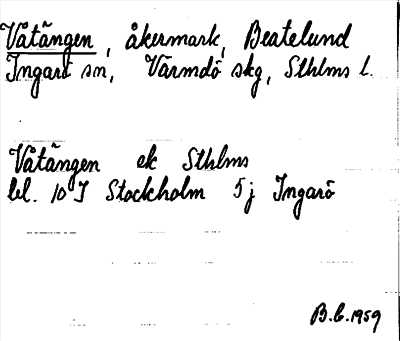 Våtängen, åkermark, Beatelund
Ingarö sn, Värmdö skg, Sthlms l.
Våtängen ek Sthlms
bl. 10 I Stockholm 5 j Ingarö
B.C. 1959